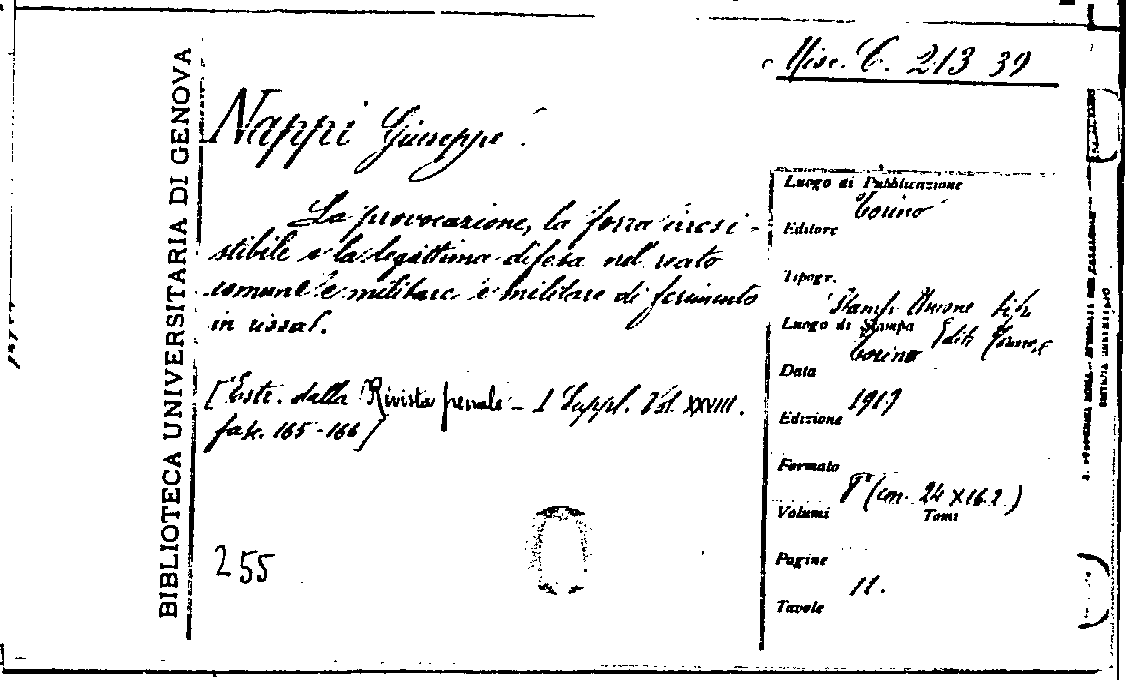 Misc. C. 213 39
BIBLIOTECA UNIVERSITARIA DI GENOVA
Nappi Giuseppe.
La provocazione, la forza irresi-
stibile e la legittima difesa nel reato
comune e militare e militare di ferimento
in rissa.
[Estr. dalla Rivista penale - 1 Suppl. Vol. XXVIII.
fasc. 165-166]
255
Luogo di Pubblicazione
Torino
Editore
Tipogr.
Stamp. Unione Tip.
Luogo di Stampa
Edit. Torinese
Torino
Data
1919
Edizione
Formato
8° (cm. 24 X 16.2)
Volumi Tomi
Pagine
11.
Tavole